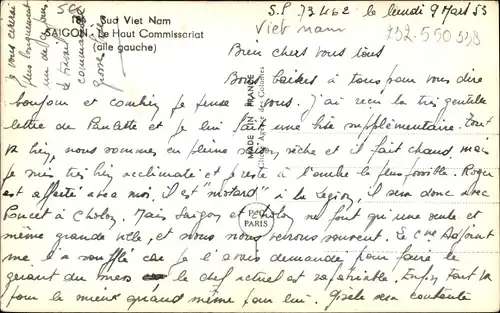 118 Sud Viet Nam
SAIGON - Le Haut Commissariat
(aile gauche)
S.P. 73462 le lundi 9 Mars 53
Viet nam
332-550 538
Bien chers vous tous
Bons baisers à tous pour vous dire
bonjour et combien je pense à vous. J'ai reçu la très gentille
lettre de Paulette et je lui fais une bise supplémentaire. Tout
va bien, nous sommes en pleine saison sèche et il fait chaud, mais
je suis très bien acclimaté et je reste à l'ombre le plus possible. Roger
est affecté avec moi. il est "motard" à la légion, il sera donc avec
Poucet à Cholon. Mais Saigon et Cholon ne font qu'une seule et
même grande ville, et nous nous verrons souvent. Le Cne Adjoint
me l'a soufflé car je l'avais demandé pour faire le
gérant du mess le chef actuel est rapatriable. Enfin tant pis
pour la mieux quand même pour lui. Gisèle sera contente
je vous écrirai
plus longuement
un de ces jours
le travail
commande
grosses bises
MADE IN FRANCE
Cliché Agence des Colonies
PC
PARIS